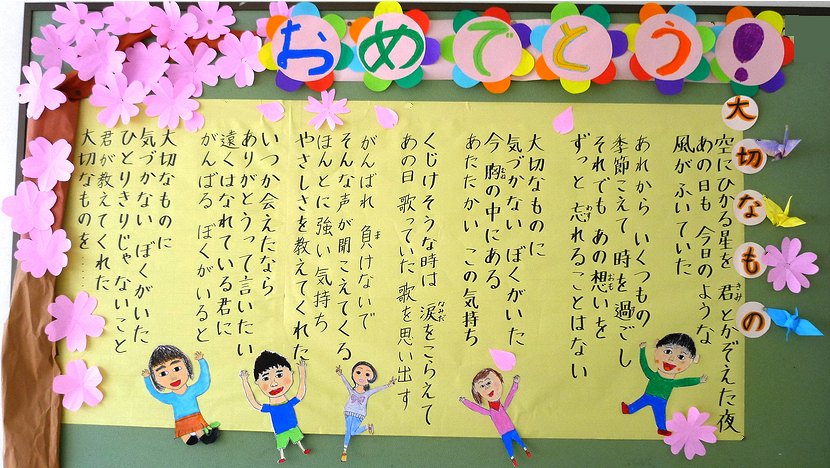 おめでとう!
大切なもの
空にひかる星を 君とかぞえた夜
きみ
あの日も 今日のような
風がふいていた
あれから いくつもの
季節こえて 時を過ごし
す
それでも あの想いを
おも
ずっと 忘れることはない
わす
大切なものに
気づかない ぼくがいた
今 胸の中にある
むね
あたたかい この気持ち
くじけそうな時は 涙をこらえて
なみだ
あの日 歌っていた 歌を思い出す
がんばれ 負けないで
ま
そんな声が 聞こえてくる
ほんとに 強い気持ち
やさしさを 教えてくれた
いつか会えたなら
ありがとうって 言いたい
遠くはなれている君に
がんばる ぼくがいると
大切なものに
気づかない ぼくがいた
ひとりきりじゃ ないこと
君が教えてくれた
大切なものを……